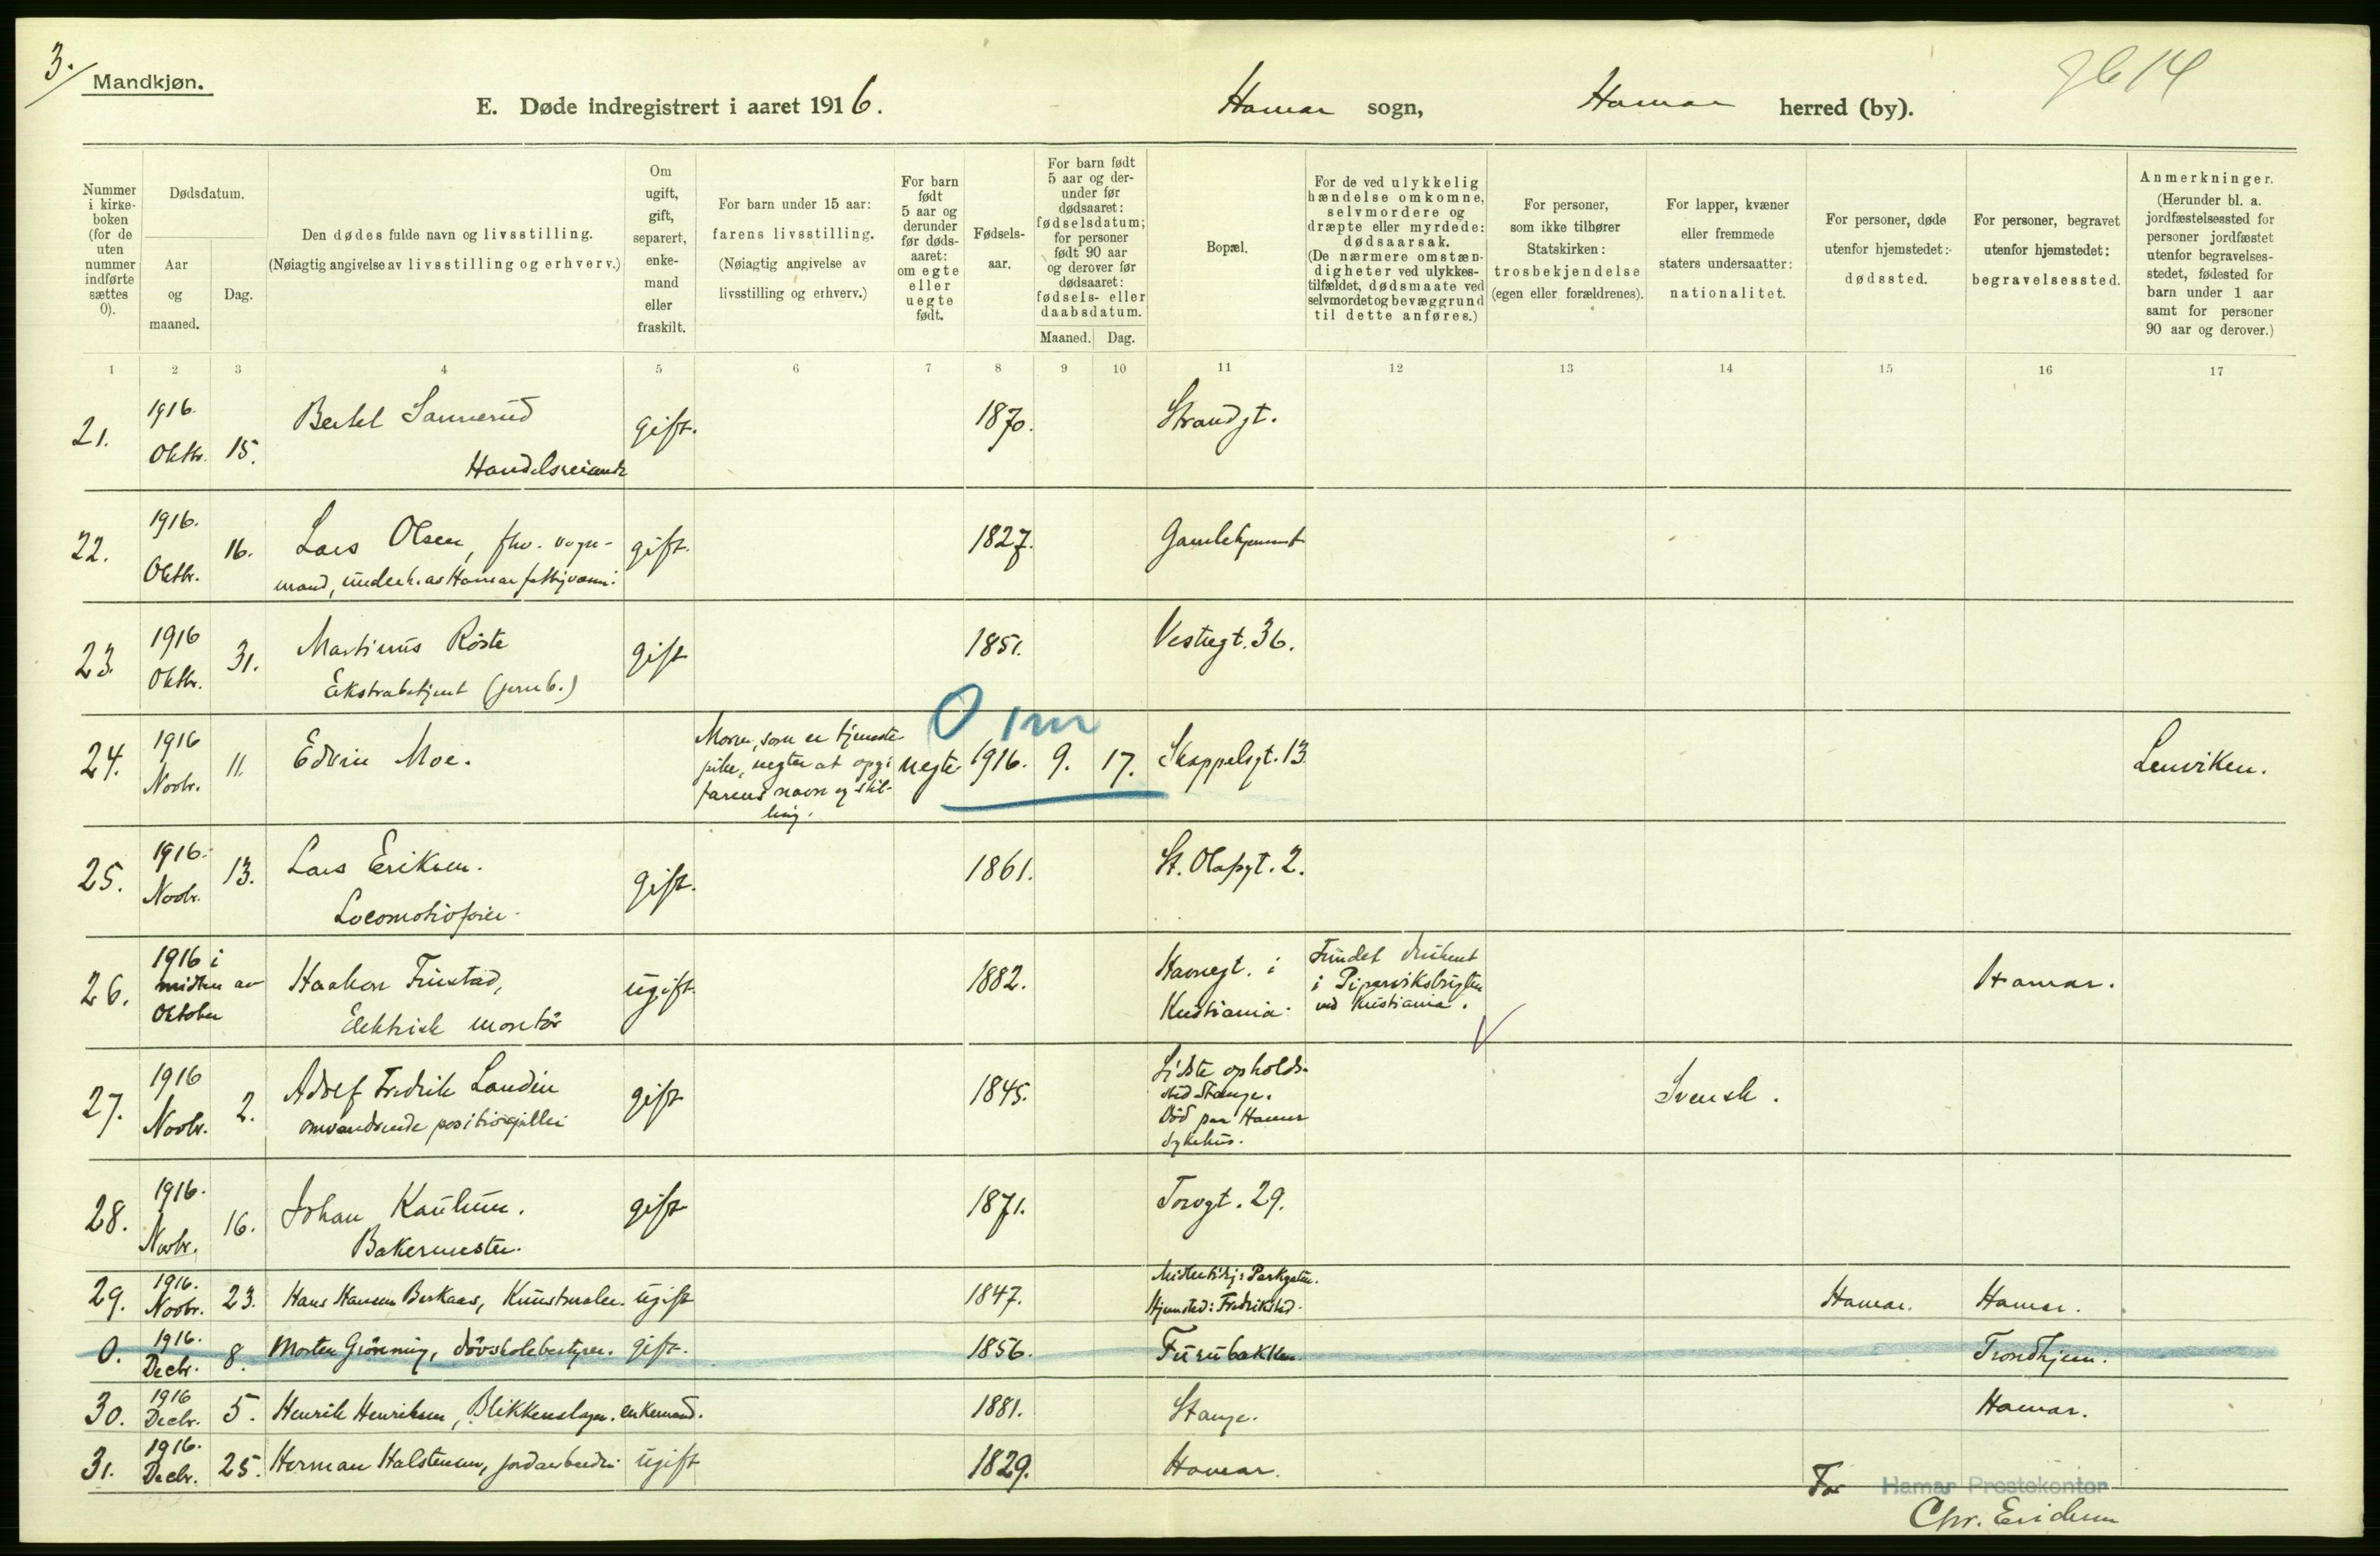 3.
Mandkjøn.
E. Døde indregistrert i aaret 1916.
Hamar sogn,
Hamar herred (by).
Nummer i kirkeboken (for de uten nummer indførte sættes 0).
Dødsdatum.
Aar og maaned.
Dag.
Den dødes fulde navn og livsstilling.
(Nøiagtig angivelse av livsstilling og erhverv.)
Om ugift, gift, separert, enkemand eller fraskilt.
For barn under 15 aar: farens livsstilling. (Nøiagtig angivelse av livsstilling og erhverv.)
For barn født 5 aar og derunder før dødsaaret: om egte eller uegte født.
Fødselsaar.
For barn født 5 aar og derunder før dødsaaret: fødselsdatum; for personer født 90 aar og derover før dødsaaret: fødsels- eller daabsdatum.
Maaned. Dag.
Bopæl.
For de ved ulykkelig hændelse omkomne, selvmordere og dræpte eller myrdede: dødsaarsak. (De nærmere omstændigheter ved ulykkestilfældet, dødsmaate ved selvmordet og bevæggrund til dette anføres.)
For personer, som ikke tilhører Statskirken: trosbekjendelse (egen eller forældrenes).
For lapper, kvæner eller fremmede staters undersaatter: nationalitet.
For personer, døde utenfor hjemstedet: dødssted.
For personer, begravet utenfor hjemstedet: begravelsessted.
Anmerkninger. (Herunder bl. a. jordfæstelsessted for personer jordfæstet utenfor begravelsesstedet, fødested for barn under 1 aar samt for personer 90 aar og derover.)
1 2 3 4 5 6 7 8 9 10 11 12 13 14 15 16 17
21. 1916. Oktbr. 15. Bertel Sannerud gift. 1870. Strandgt.
Handelsreisende
22. 1916. Oktbr. 16. Lars Olsen, fhv. vogn- gift. 1827. Gamlehjemmet
mand, underh. av Hamar fattigvæsen.
23. 1916 Oktbr. 31. Martinus Röste gift 1851. Vestregt. 36.
Ekstrabetjent (jernb.)
24. 1916 Novbr. 11. Edvin Moe. uegte 1916. 9. 17. Skappelsgt. 13 Lenviken.
Moren, som er tjeneste-
pike, negter at opgi
farens navn og stil-
ling.
0 1m
25. 1916. Novbr. 13. Lars Eriksen. gift. 1861. St. Olafsgt. 2.
Locomotivfører.
26. 1916 i midten av Oktober Haakon Finstad, ugift. 1882. Havnegt. i Kristiania. Hamar.
Elektrisk montör
Fundet druknet
i Piperviksbugten
ved Kristiania.
27. 1916 Novbr. 2. Adolf Fredrik Landin gift 1845. Svensk.
omvandrende positivspiller
Sidste opholds-
sted Stange.
Död paa Hamar
sykehus.
28. 1916. Novbr. 16. Johan Kaulum. gift 1871. Torvgt. 29.
Bakermester.
29. 1916. Novbr. 23. Hans Hansen Berkaas, Kunstmaler. ugift 1847. Hamar. Hamar.
Midlertidig: Parkgaten.
Hjemsted: Fredrikstad.
0. 1916. Decbr. 8. Morten Gröning, dövskolebestyrer. gift. 1856. Furubakken Trondhjem.
30. 1916 Decbr. 5. Henrik Henriksen, Blikkenslager. enkemand. 1881. Stange. Hamar.
31. 1916. Decbr. 25. Herman Halstensen, jordarbeider ugift 1829. Hamar.
For Hamar Prestekontor
Chr. Eriksen